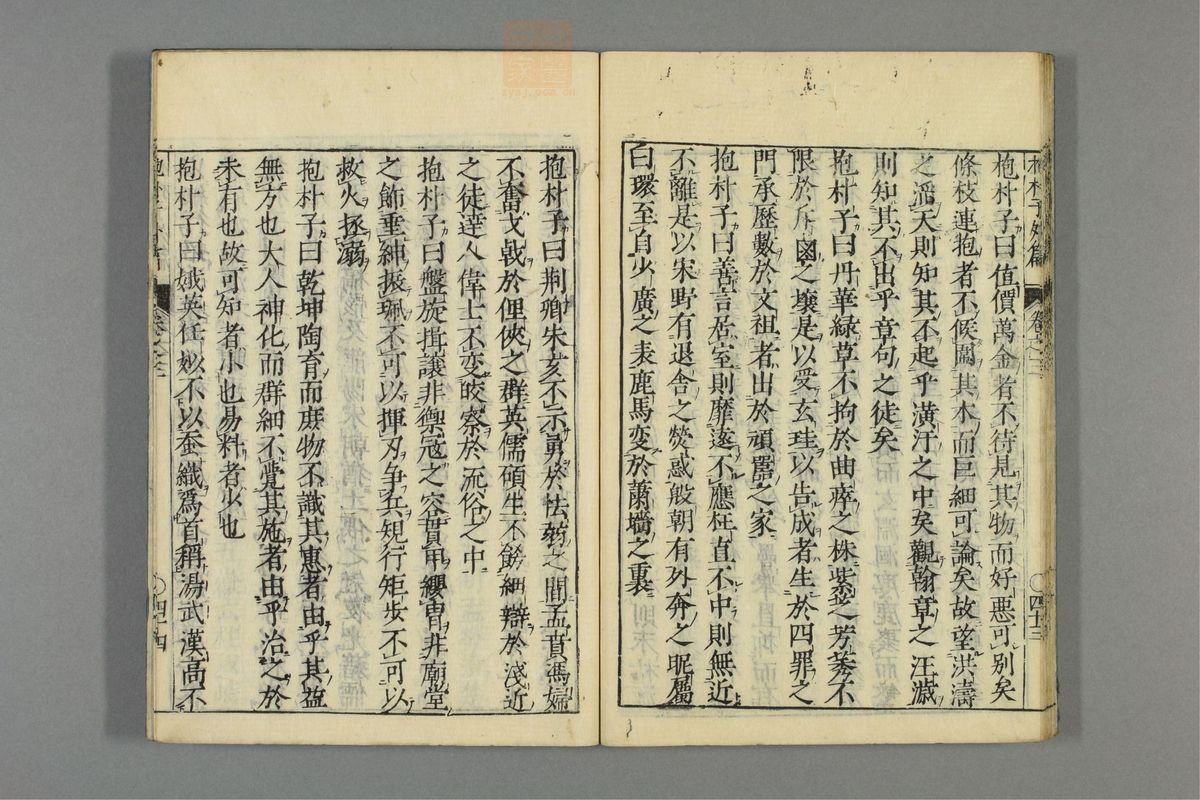 抱朴子曰值價萬金者不待見其物而好惡可別矣
條枝連抱者不俟圍其木而巨細可論矣故望洪濤
之滔天則知其不起乎潢汙之中矣觀翰章之汪濊
則知其不出乎章句之徒矣
抱朴子曰丹華綠草不拘於曲瘁之株紫芝芳秀不
限於斥鹵之壤是以受玄珪以告成者生於四罪之
門承歷數於文祖者出於頑嚚之家
抱朴子曰善言居室則靡遠不應枉直不中則無近
不離是以宋野有退舍之熒惑殷朝有外奔之昵屬
白環至自少廣之表鹿馬変於蕭墻之裏
抱朴子外篇
卷之三
四十三
抱朴子曰荆卿朱亥不示勇於怯弱之間孟賁馮婦
不奮戈戟於俚俠之群英儒碩生不飾細辯於淺近
之徒達人偉士不変皎察於流俗之中
抱朴子曰盤旋揖讓非禦寇之容貫甲纓冑非廟堂
之飾垂紳振珮不可以揮刃爭兵規行矩步不可以
救火拯溺
抱朴子曰乾坤陶育而庶物不識其惠者由乎其益
無方也大人神化而群細不覺其施者由乎治之於
未有也故可知者小也易料者少也
抱朴子曰娥英任姒不以蚕織爲首稱湯武漢高不
卷之三
四十四